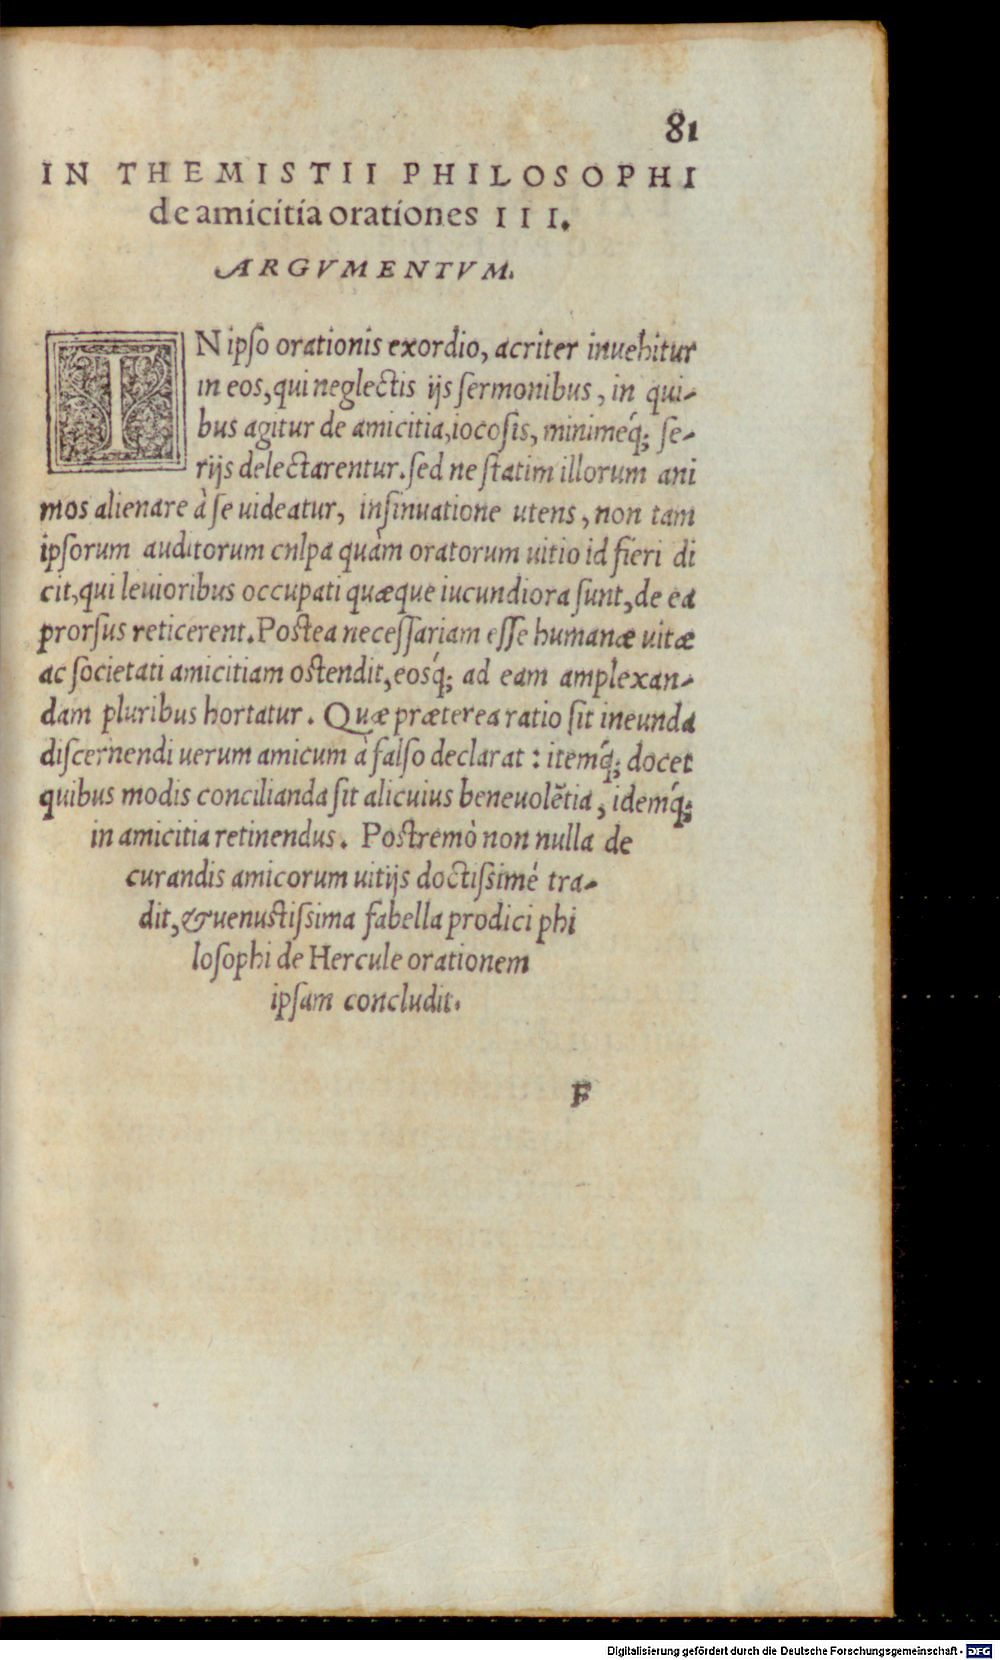 81
IN THEMISTII PHILOSOPHI
de amicitia orationes III.
ARGVMENTVM.
IN ipſo orationis exordio, acriter inuehitur
in eos, qui neglectis ijs ſermonibus, in qui-
bus agitur de amicitia, iocoſis, minimeq́; ſe-
rijs delectarentur. ſed ne ſtatim illorum ani
mos alienare à ſe uideatur, inſinuatione utens, non tam
ipſorum auditorum cnlpa quàm oratorum uitio id fieri di
cit, qui leuioribus occupati quæque iucundiora ſunt, de ea
prorſus reticerent. Postea neceſſariam eſſe humanæ uitæ
ac ſocietati amicitiam ostendit, eosq́; ad eam amplexan-
dam pluribus hortatur. Quæ præterea ratio ſit ineunda
diſcernendi uerum amicum à falſo declarat: itemq́; docet
quibus modis concilianda ſit alicuius beneuolẽtia, idemq́;
in amicitia retinendus. Postremò non nulla de
curandis amicorum uitijs doctiſsimé tra-
dit, & uenustiſsima fabella prodici phi
loſophi de Hercule orationem
ipſam concludit.
F
Digitalisierung gefördert durch die Deutsche Forschungsgemeinschaft - DFG